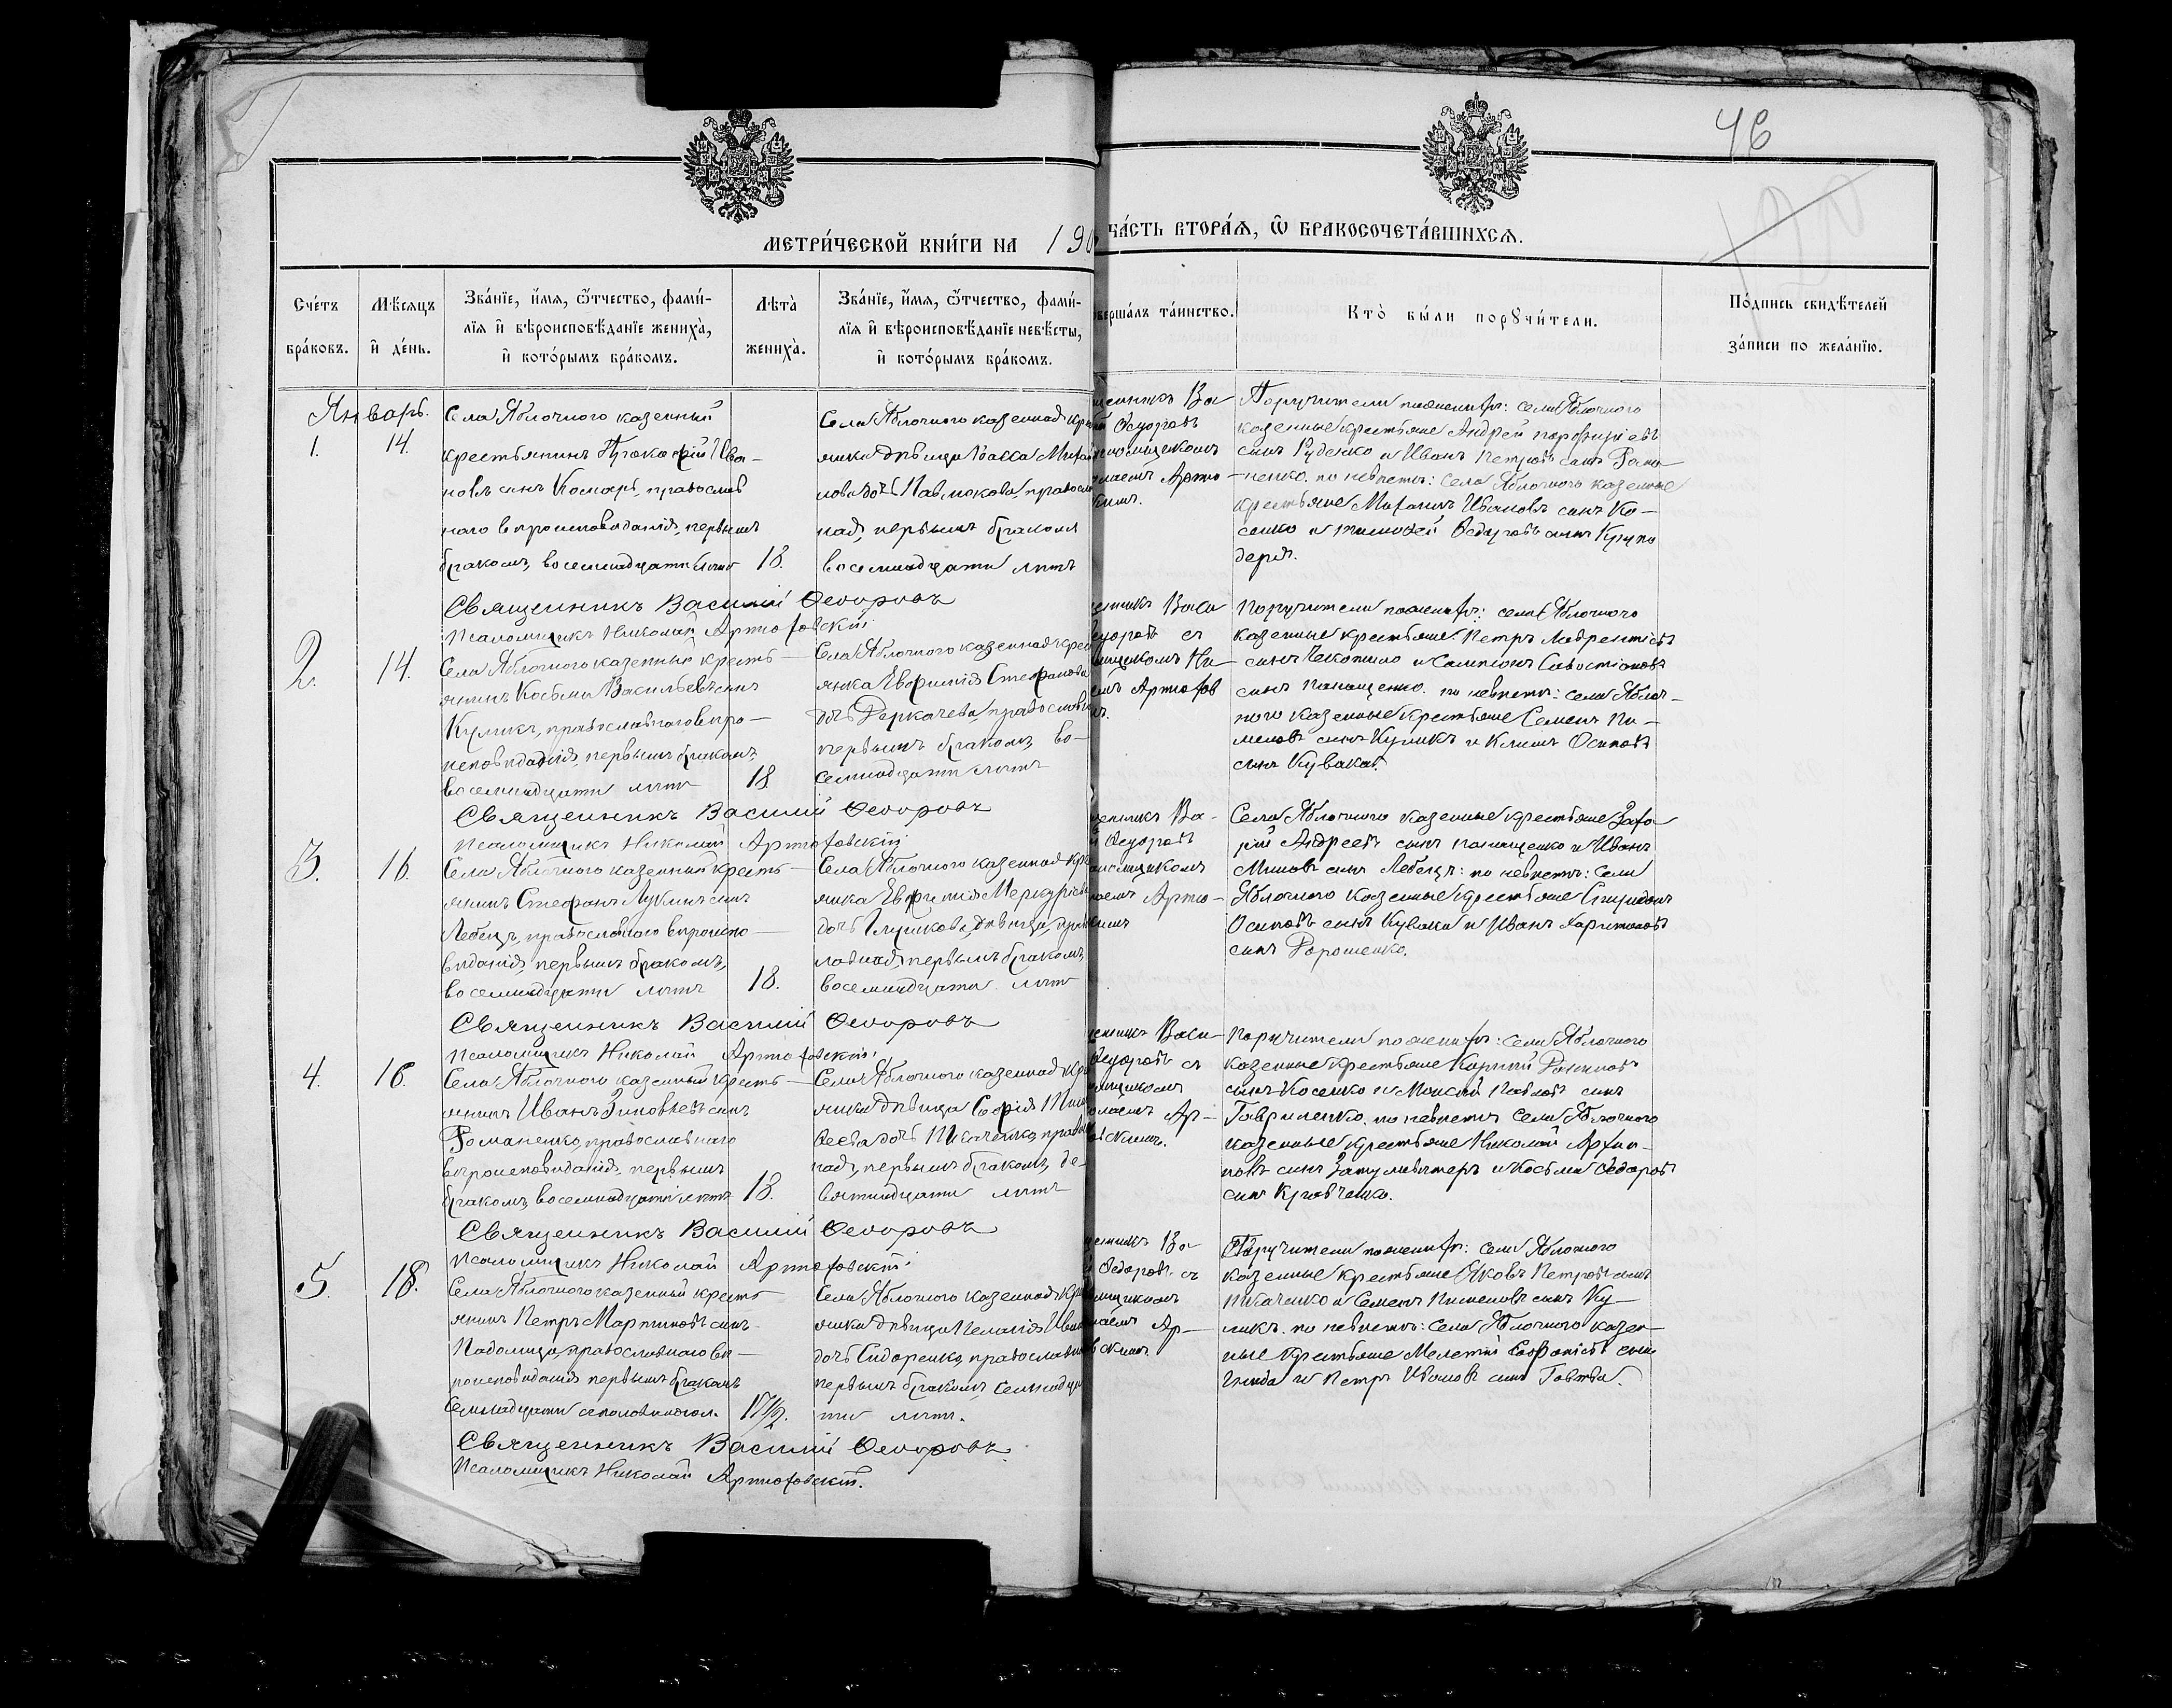 46
МЕТРИ́ЧЕСКОЙ КНИ́ГИ НА 190
ЧА́СТЬ ВТОРА́Я, Ѿ БРАКОСОЧЕТА́ВШИХСЯ.
Сче́тъ бра́ковъ.
Мѣ́сяцъ и҆ де́нь.
Зва́нїе, и҆́мя, ѻ҆́тчество, фами́-
лїя и҆ вѣроисповѣ́данїе жениха̀,
и҆ кото́рымъ бра́комъ.
Лѣта̀ жениха̀.
Зва́нїе, и҆́мя, ѻ҆́тчество, фами́-
лїя и҆ вѣроисповѣ́данїе невѣ́сты,
и҆ кото́рымъ бра́комъ.
овершалъ та́инство.
Кто̀ бы́ли порꙋчи́тели.
По́дпись свидѣ́телей
за́писи по жела́нїю.
Январь.
1.
14.
Села Яблочного казенный
крестьянинъ Прокофій Ива-
новъ сынъ Комаръ, православ
наго вѣроисповѣданія, первымъ
бракомъ, восемнадцати лѣтъ
18.
Села Яблочного казенная кре
янка дѣвица Васса Миха
лова дочь Павлюкова, правосла
ная, первымъ бракомъ
восемнадцати лѣтъ
Ва
Ѳедоровъ
Артю
Поручители по женихѣ: села Яблочного
казенные крестьяне Андрей Порфиріевъ
сынъ Руденко и Иванъ Петровъ сынъ Рома
ненко. по невѣстѣ: села Яблочного казенные
крестьяне Митрофанъ Ивановъ сынъ Ко-
сенко и Тимофей Ѳедоровъ сынъ Крупо
деря.
Священникъ Василій Ѳеодоровъ
Псаломщикъ Николай Артюховскій
2.
14.
Села Яблочного казенный кресть-
янинъ Косьма Васильевъ сынъ
Куликъ, православнаго вѣро-
исповѣданія, первымъ бракомъ,
восемнадцати лѣтъ
18.
Села Яблочного казенная крес
янка Евфимія Стефанова
дочь Деркачева, православн
первымъ бракомъ, во-
семнадцати лѣтъ
Васи
съ
Ни-
Артюхов
Поручители по женихѣ: села Яблочного
казенные крестьяне Петръ Лаврентіевъ
сынъ Чекотило и Сампсонъ Савостіановъ
сынъ Панащенко. по невѣстѣ: села Яблоч-
ного казенные крестьяне Семенъ Пи-
меновъ сынъ Куликъ и Климъ Осиповъ
сынъ Кувака.
Священникъ Василій Ѳеодоровъ
Псаломщикъ Николай Артюховскій
3.
16.
Села Яблочного казенный кресть-
янинъ Стефанъ Лукинъ сынъ
Лебецъ, православнаго вѣроиспо-
вѣданія, первымъ бракомъ,
восемнадцати лѣтъ
18.
Села Яблочного казенная кре
янка Евфимія Меркурьева
дочь Глушкова, дѣвица, пра
лавная, первымъ бракомъ,
восемнадцати лѣтъ
Ва-
Ѳедоровъ
Артю-
Села Яблочного казенные крестьяне Заха
рій Андреевъ сынъ Панащенко и Иванъ
Миновъ сынъ Лебецъ: по невѣстѣ: села
Яблочного казенные крестьяне Спиридонъ
Осиповъ сынъ Кувака и Иванъ Харитоновъ
сынъ Дорошенко.
Священникъ Василій Ѳеодоровъ
Псаломщикъ Николай Артюховскій
4.
16.
Села Яблочного казенный кресть-
янинъ Иванъ Зиновьевъ сынъ
Романенко, православнаго
вѣроисповѣданія, первымъ
бракомъ, восемнадцати лѣтъ
18.
Села Яблочного казенная кр
янка дѣвица Софія Тимо
ѳеева дочь Ткаченко, правосл
ная, первымъ бракомъ, де-
вятнадцати лѣтъ
Васи-
Ѳедоровъ съ
Ар-
Поручители по женихѣ: села Яблочного
казенные крестьяне Карпъ Родіоновъ
сынъ Косенко и Моисей Павловъ сынъ
Гавриленко. по невѣстѣ села Яблочного
казенные крестьяне Николай Архип-
повъ сынъ и Косьма Ѳедоровъ
сынъ Кравченко.
Священникъ Василій Ѳеодоровъ
Псаломщикъ Николай Артюховскій
5.
18.
Села Яблочного казенный кресть
янинъ Петръ Мартиновъ сынъ
Падалица, православнаго вѣ-
роисповѣданія первымъ бракомъ
Семнадцати съ половиною л.
17½.
Села Яблочного казенная кре
янка дѣвица Пелагія Иван
дочь Сидоренко, православн
первымъ бракомъ Семнадца
ти лѣтъ.
Ва
Ѳедоров. съ
Ар-
Поручители по женихѣ: села Яблочного
казенные крестьяне Яковъ Петровъ сынъ
Ткаченко и Семенъ Пименовъ сынъ Ку-
ликъ. по невѣстѣ: села Яблочного казен-
ные крестьяне Мелетій сынъ
Гнида и Петръ Ивановъ сынъ Говтва.
Священникъ Василій Ѳеодоровъ
Псаломщикъ Николай Артюховскій.